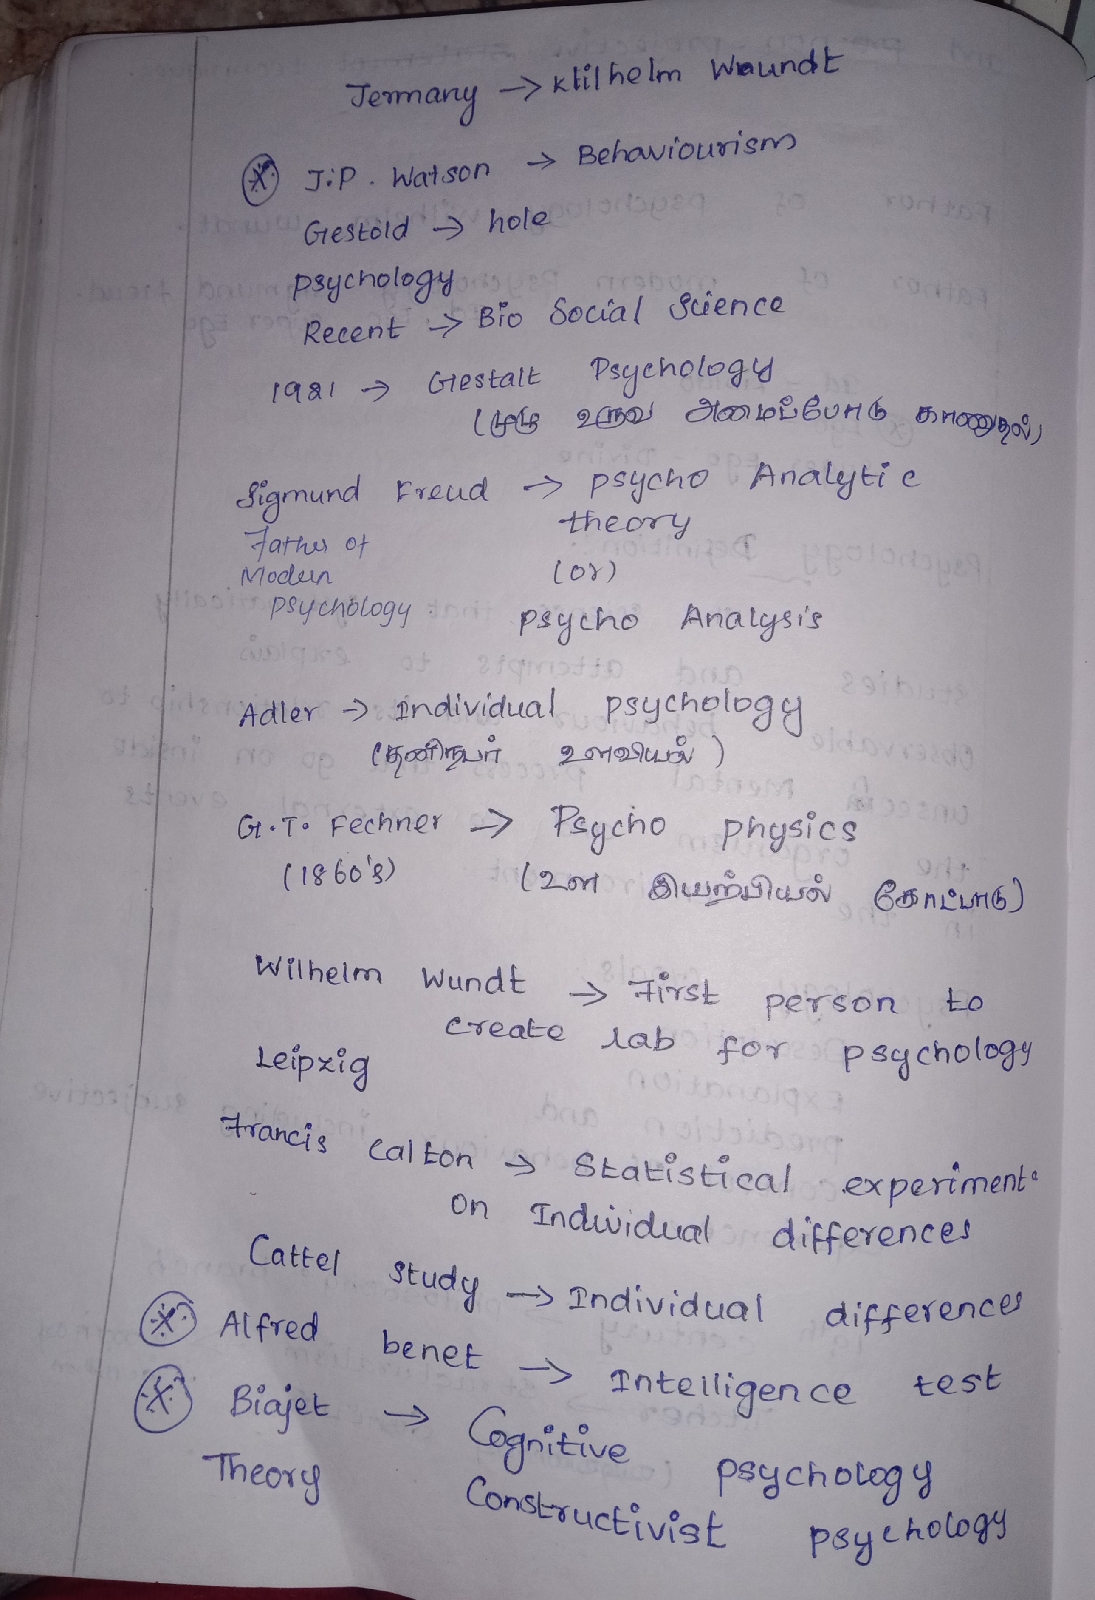 Jermany → Wilhelm Wuundt
J.P. Watson → Behaviourism
Gestold → hole
psychology
Recent → Bio Social Science
1921 → Gestalt Psychology
(முழு உருவ அமைப்போடு காணுதல்)
Sigmund Freud → psycho Analytic
theory
Father of
Modern (or)
psychology. psycho Analysis
Adler → Individual psychology
(தனிநபர் உளவியல்)
G.T. Fechner → Psycho physics
(1860's) (உள இயற்பியல் கோட்பாடு)
Wilhelm Wundt → First person to
create lab for psychology
Leipzig
Francis Calton → Statistical experiment
on Individual differences
Cattel study → Individual differences
Alfred benet → Intelligence test
Biajet → Cognitive psychology
Theory Constructivist psychology